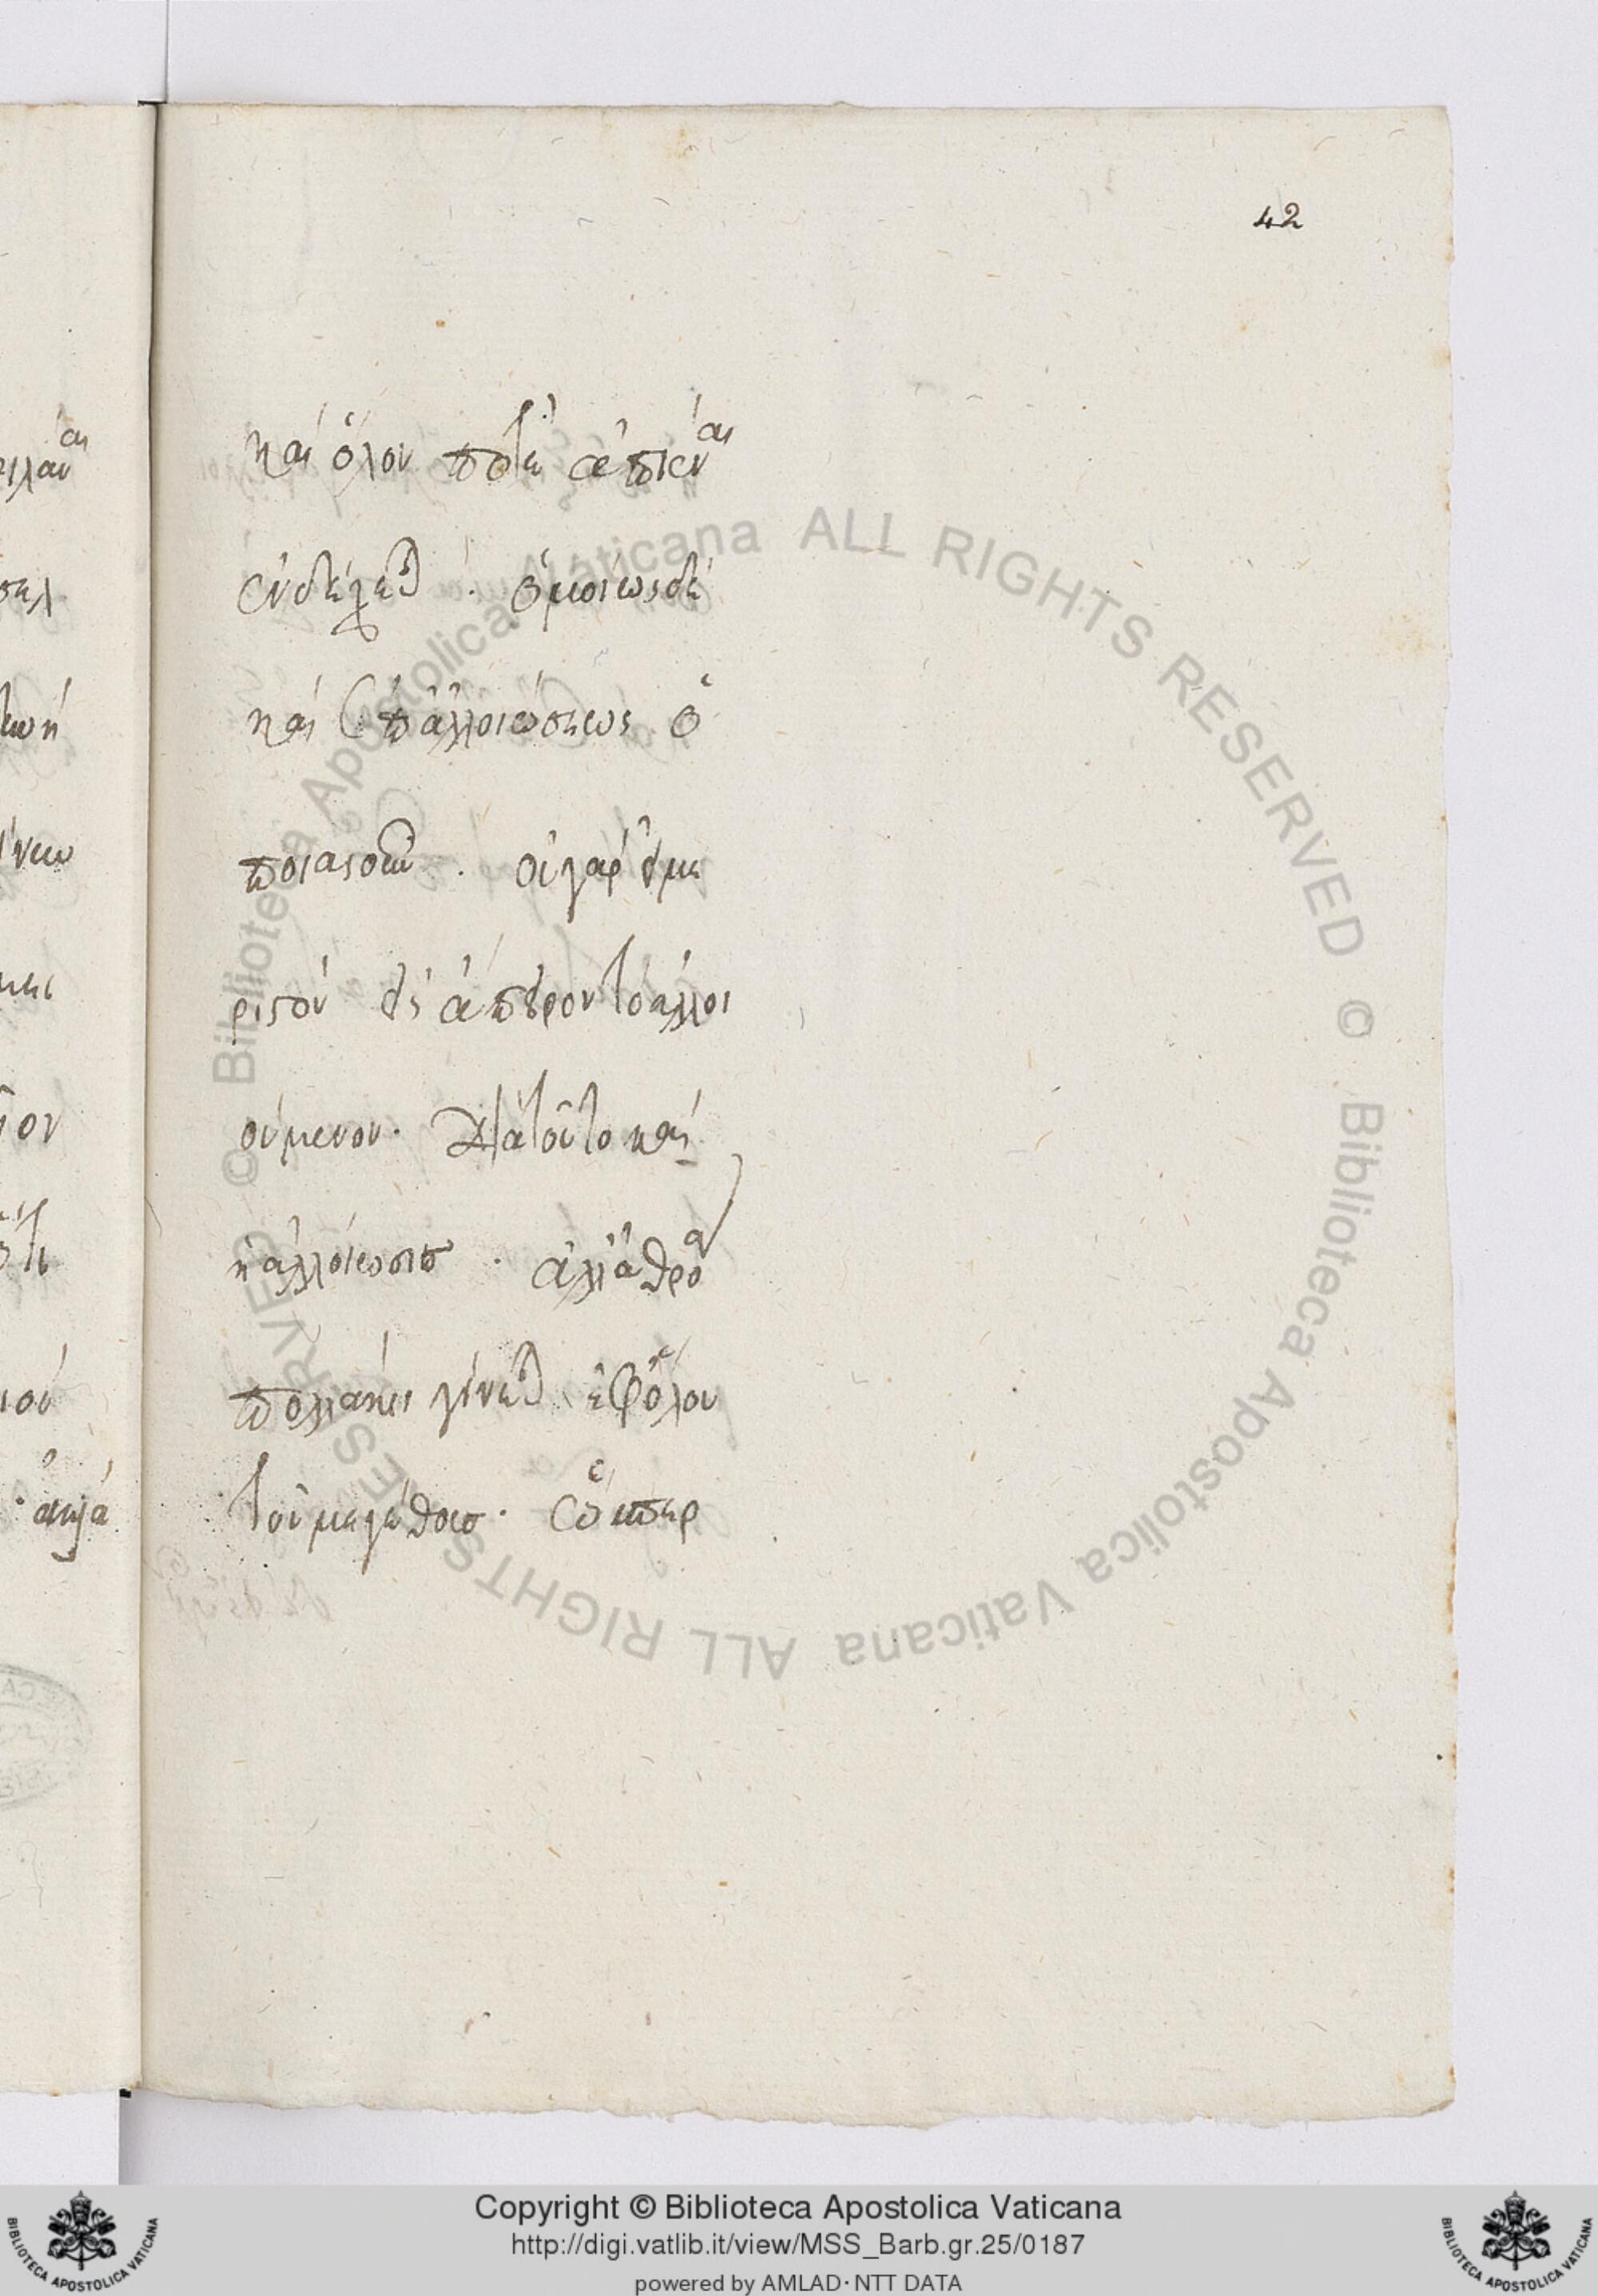 42
καὶ ὅλον ποτὲ ἀπιέναι
ἐνδέχεται . ὁμοίως δὲ
καὶ ἐπ ἀλλοιώσεως ὁ
ποιασοῦν . οὐ γὰρ εἰ με
ριστὸν εἰς ἄπειρον τὸ ἀλλοι
ούμενον · διὰ τοῦτο καὶ
ἡ ἀλλοίωσις . ἀλλ ἀθρόα
πολλάκις γίνεται ἐφ ὅλου
τοῦ μεγέθους · ὥσπερ
© Biblioteca Apostolica Vaticana ALL RIGHTS RESERVED © Biblioteca Apostolica Vaticana ALL RIGHTS RESERVED
Copyright © Biblioteca Apostolica Vaticana
http://digi.vatlib.it/view/MSS_Barb.gr.25/0187
powered by AMLAD·NTT DATA
BIBLIOTECA APOSTOLICA VATICANA
BIBLIOTECA APOSTOLICA VATICANA